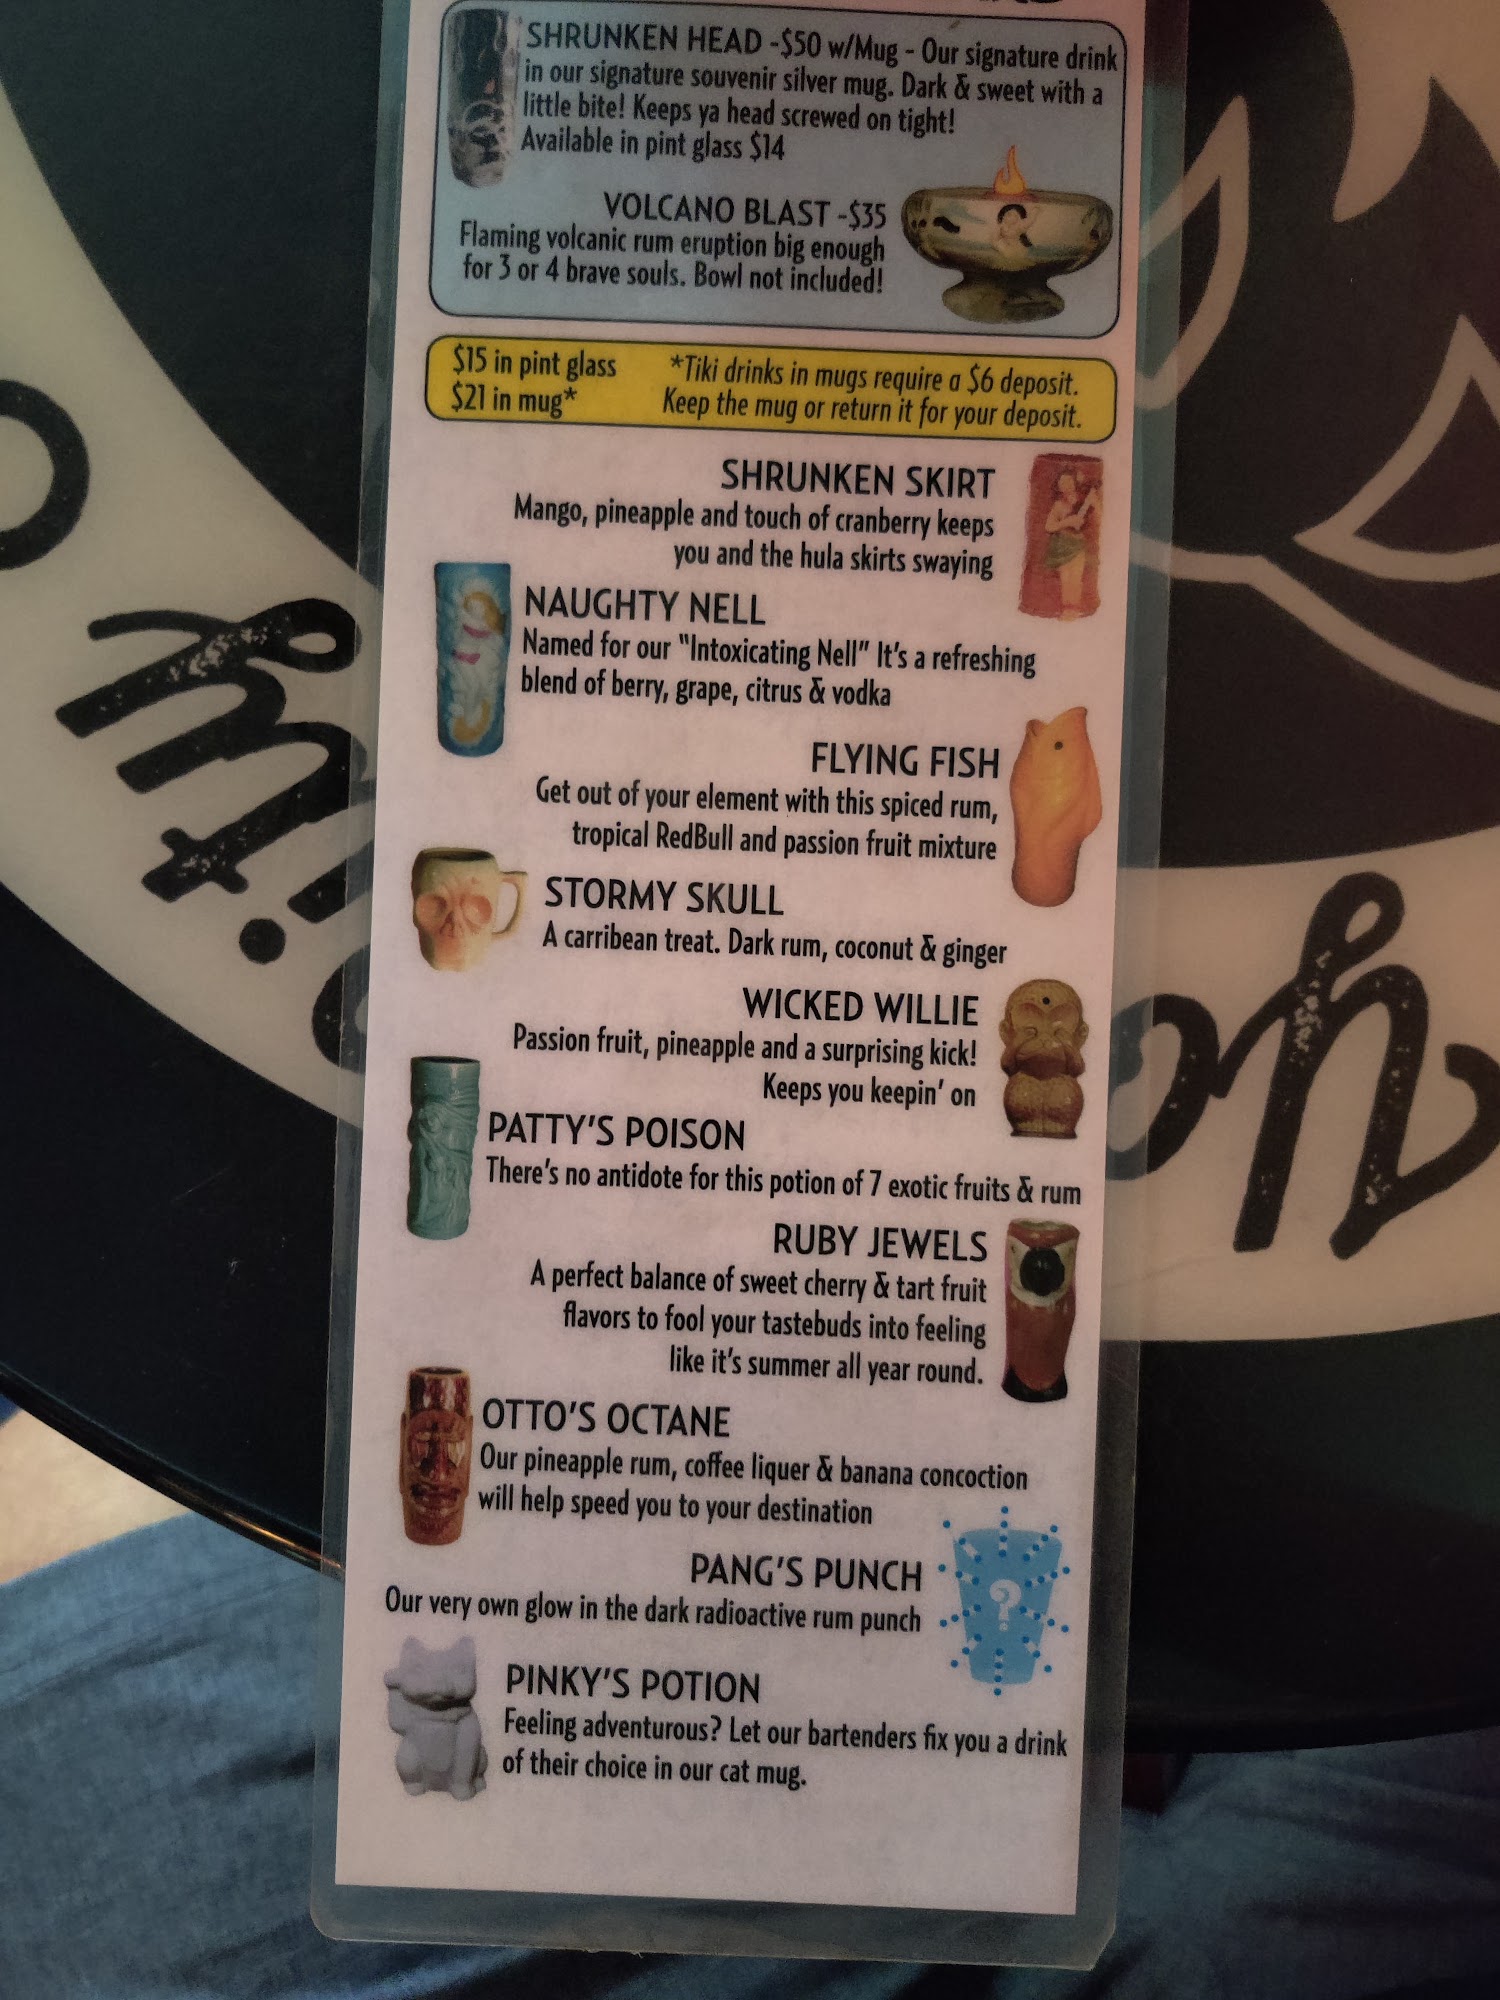 SHRUNKEN HEAD -$50 w/Mug - Our signature drink
in our signature souvenir silver mug. Dark & sweet with a
little bite! Keeps ya head screwed on tight!
Available in pint glass $14
VOLCANO BLAST -$35
Flaming volcanic rum eruption big enough
for 3 or 4 brave souls. Bowl not included!
$15 in pint glass
$21 in mug*
*Tiki drinks in mugs require a $6 deposit.
Keep the mug or return it for your deposit.
SHRUNKEN SKIRT
Mango, pineapple and touch of cranberry keeps
you and the hula skirts swaying
NAUGHTY NELL
Named for our "Intoxicating Nell" It's a refreshing
blend of berry, grape, citrus & vodka
FLYING FISH
Get out of your element with this spiced rum,
tropical RedBull and passion fruit mixture
STORMY SKULL
A carribean treat. Dark rum, coconut & ginger
WICKED WILLIE
Passion fruit, pineapple and a surprising kick!
Keeps you keepin' on
PATTY'S POISON
There's no antidote for this potion of 7 exotic fruits & rum
RUBY JEWELS
A perfect balance of sweet cherry & tart fruit
flavors to fool your tastebuds into feeling
like it's summer all year round.
OTTO'S OCTANE
Our pineapple rum, coffee liquer & banana concoction
will help speed you to your destination
PANG'S PUNCH
Our very own glow in the dark radioactive rum punch
?
PINKY'S POTION
Feeling adventurous? Let our bartenders fix you a drink
of their choice in our cat mug.